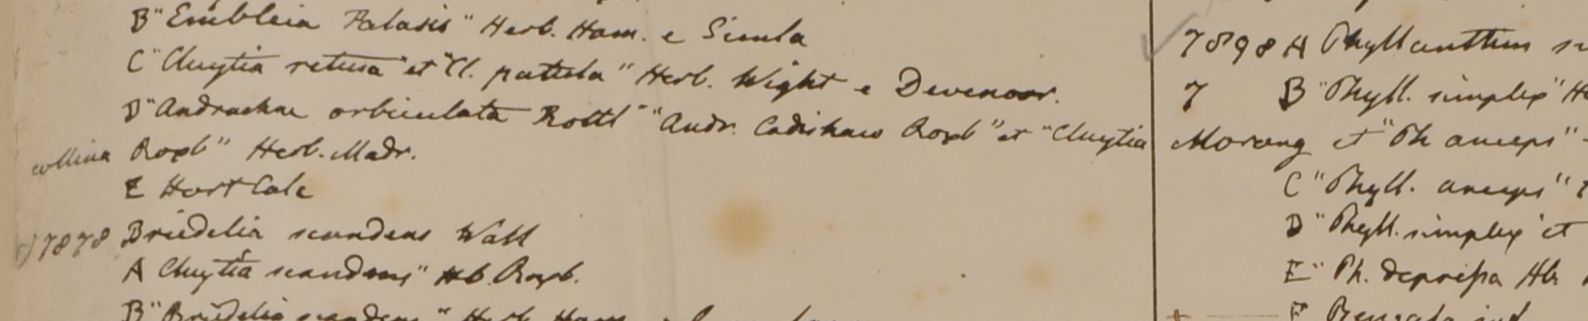 B "Embleia Palasis" Herb. Ham. e Simla
C "Cluytia retusa" et "Cl. patula" Herb. Wight e
D "Andrachne orbiculata Rottl" "Andr. Cadishaco Roxb" et "Cluytia
collina Roxb" Herb. Madr.
E Hort Calc
7878 Briedelia scandens Wall
A Cluytia scandens" Hb. Roxb.
B "Briedelia scandens" Herb. Ham.
7898 A Phyllanthus
7 B "Phyll. simplex"
Morang et "Ph anceps"
C "Phyll. anceps"
D "Phyll. simplex et
E "Ph. depressa Hb
F